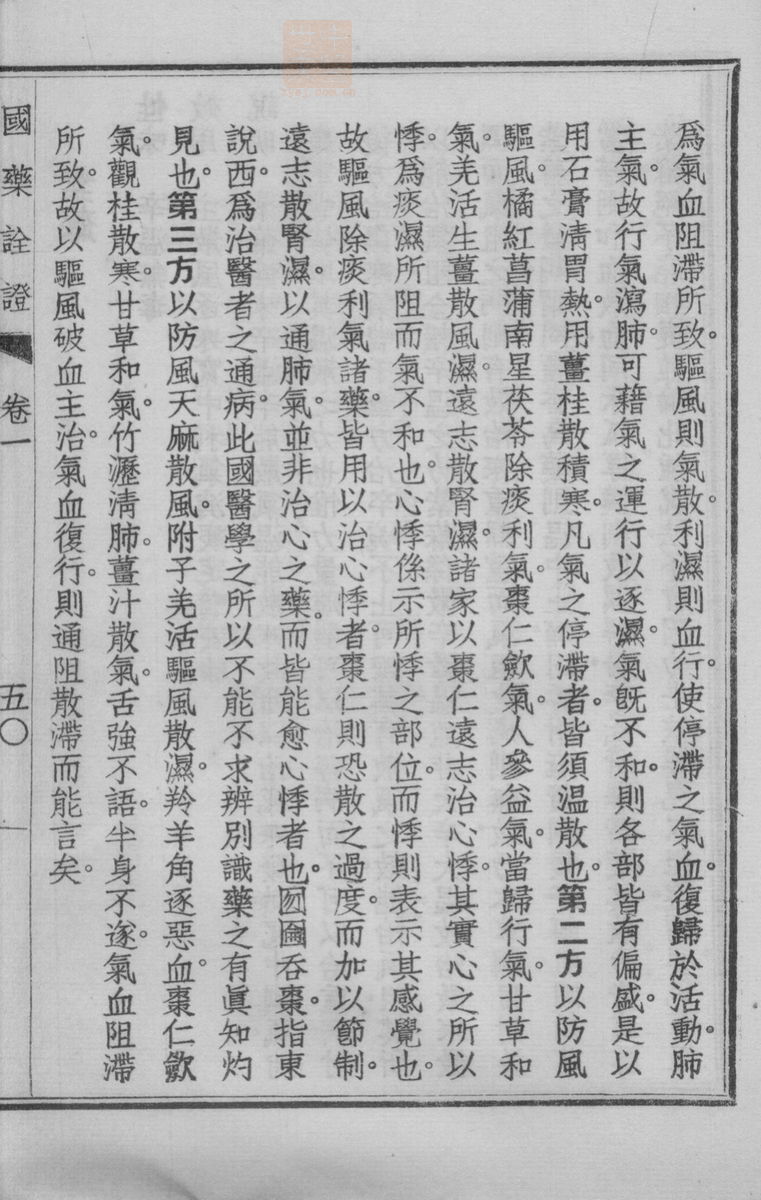 爲氣血阻滯所致。驅風則氣散。利濕則血行。使停滯之氣血。復歸於活動。肺
主氣。故行氣瀉肺。可藉氣之運行以逐濕。氣旣不和。則各部皆有偏盛。是以
用石膏淸胃熱。用薑桂散積寒。凡氣之停滯者。皆須温散也。第二方以防風
驅風。橘紅菖蒲南星茯苓除痰利氣。棗仁歛氣。人參益氣。當歸行氣。甘草和
氣。羌活生薑散風濕。遠志散腎濕。諸家以棗仁遠志治心悸。其實心之所以
悸。爲痰濕所阻而氣不和也。心悸係示所悸之部位。而悸則表示其感覺也。
故驅風除痰利氣諸藥。皆用以治心悸者。棗仁則恐散之過度。而加以節制。
遠志散腎濕。以通肺氣。並非治心之藥。而皆能愈心悸者也。囫圇呑棗。指東
說西。爲治醫者之通病。此國醫學之所以不能不求辨別識藥之有眞知灼
見也。第三方以防風天麻散風。附子羌活驅風散濕。羚羊角逐惡血。棗仁歛
氣。觀桂散寒。甘草和氣。竹瀝淸肺。薑汁散氣。舌強不語。半身不遂。氣血阻滯
所致。故以驅風破血主治。氣血復行。則通阻散滯而能言矣。
國藥詮證 卷一 五〇